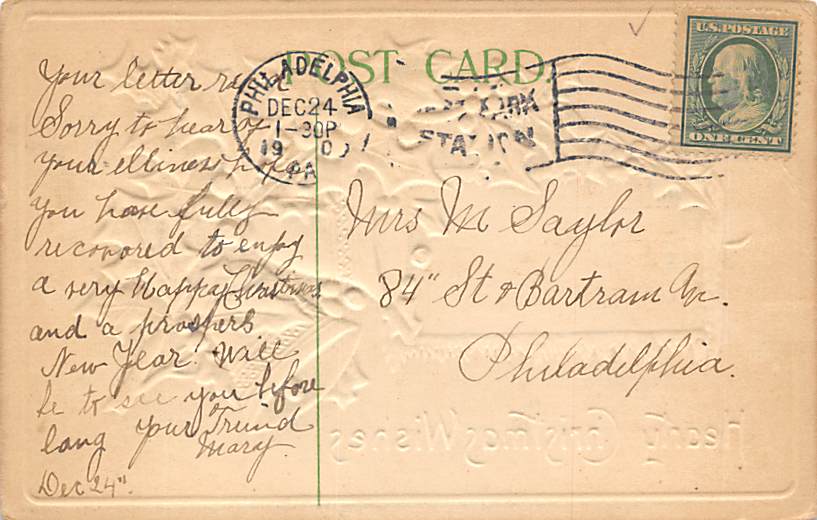 POST CARD
U.S. POSTAGE
ONE CENT
PHILADELPHIA
DEC 24
1-30P
19
PA
STATION
Your letter
Sorry to hear of
your illiness hope
you have fully
recovored to enjoy
a very Happa Christmas
and a prospers
New Year. Will
be to see you before
long your Friind
Mary.
Dec 24"
Mrs M Saylor
84" St & Bartram Av.
Philadelphia.
Hearty Christmas Wishes